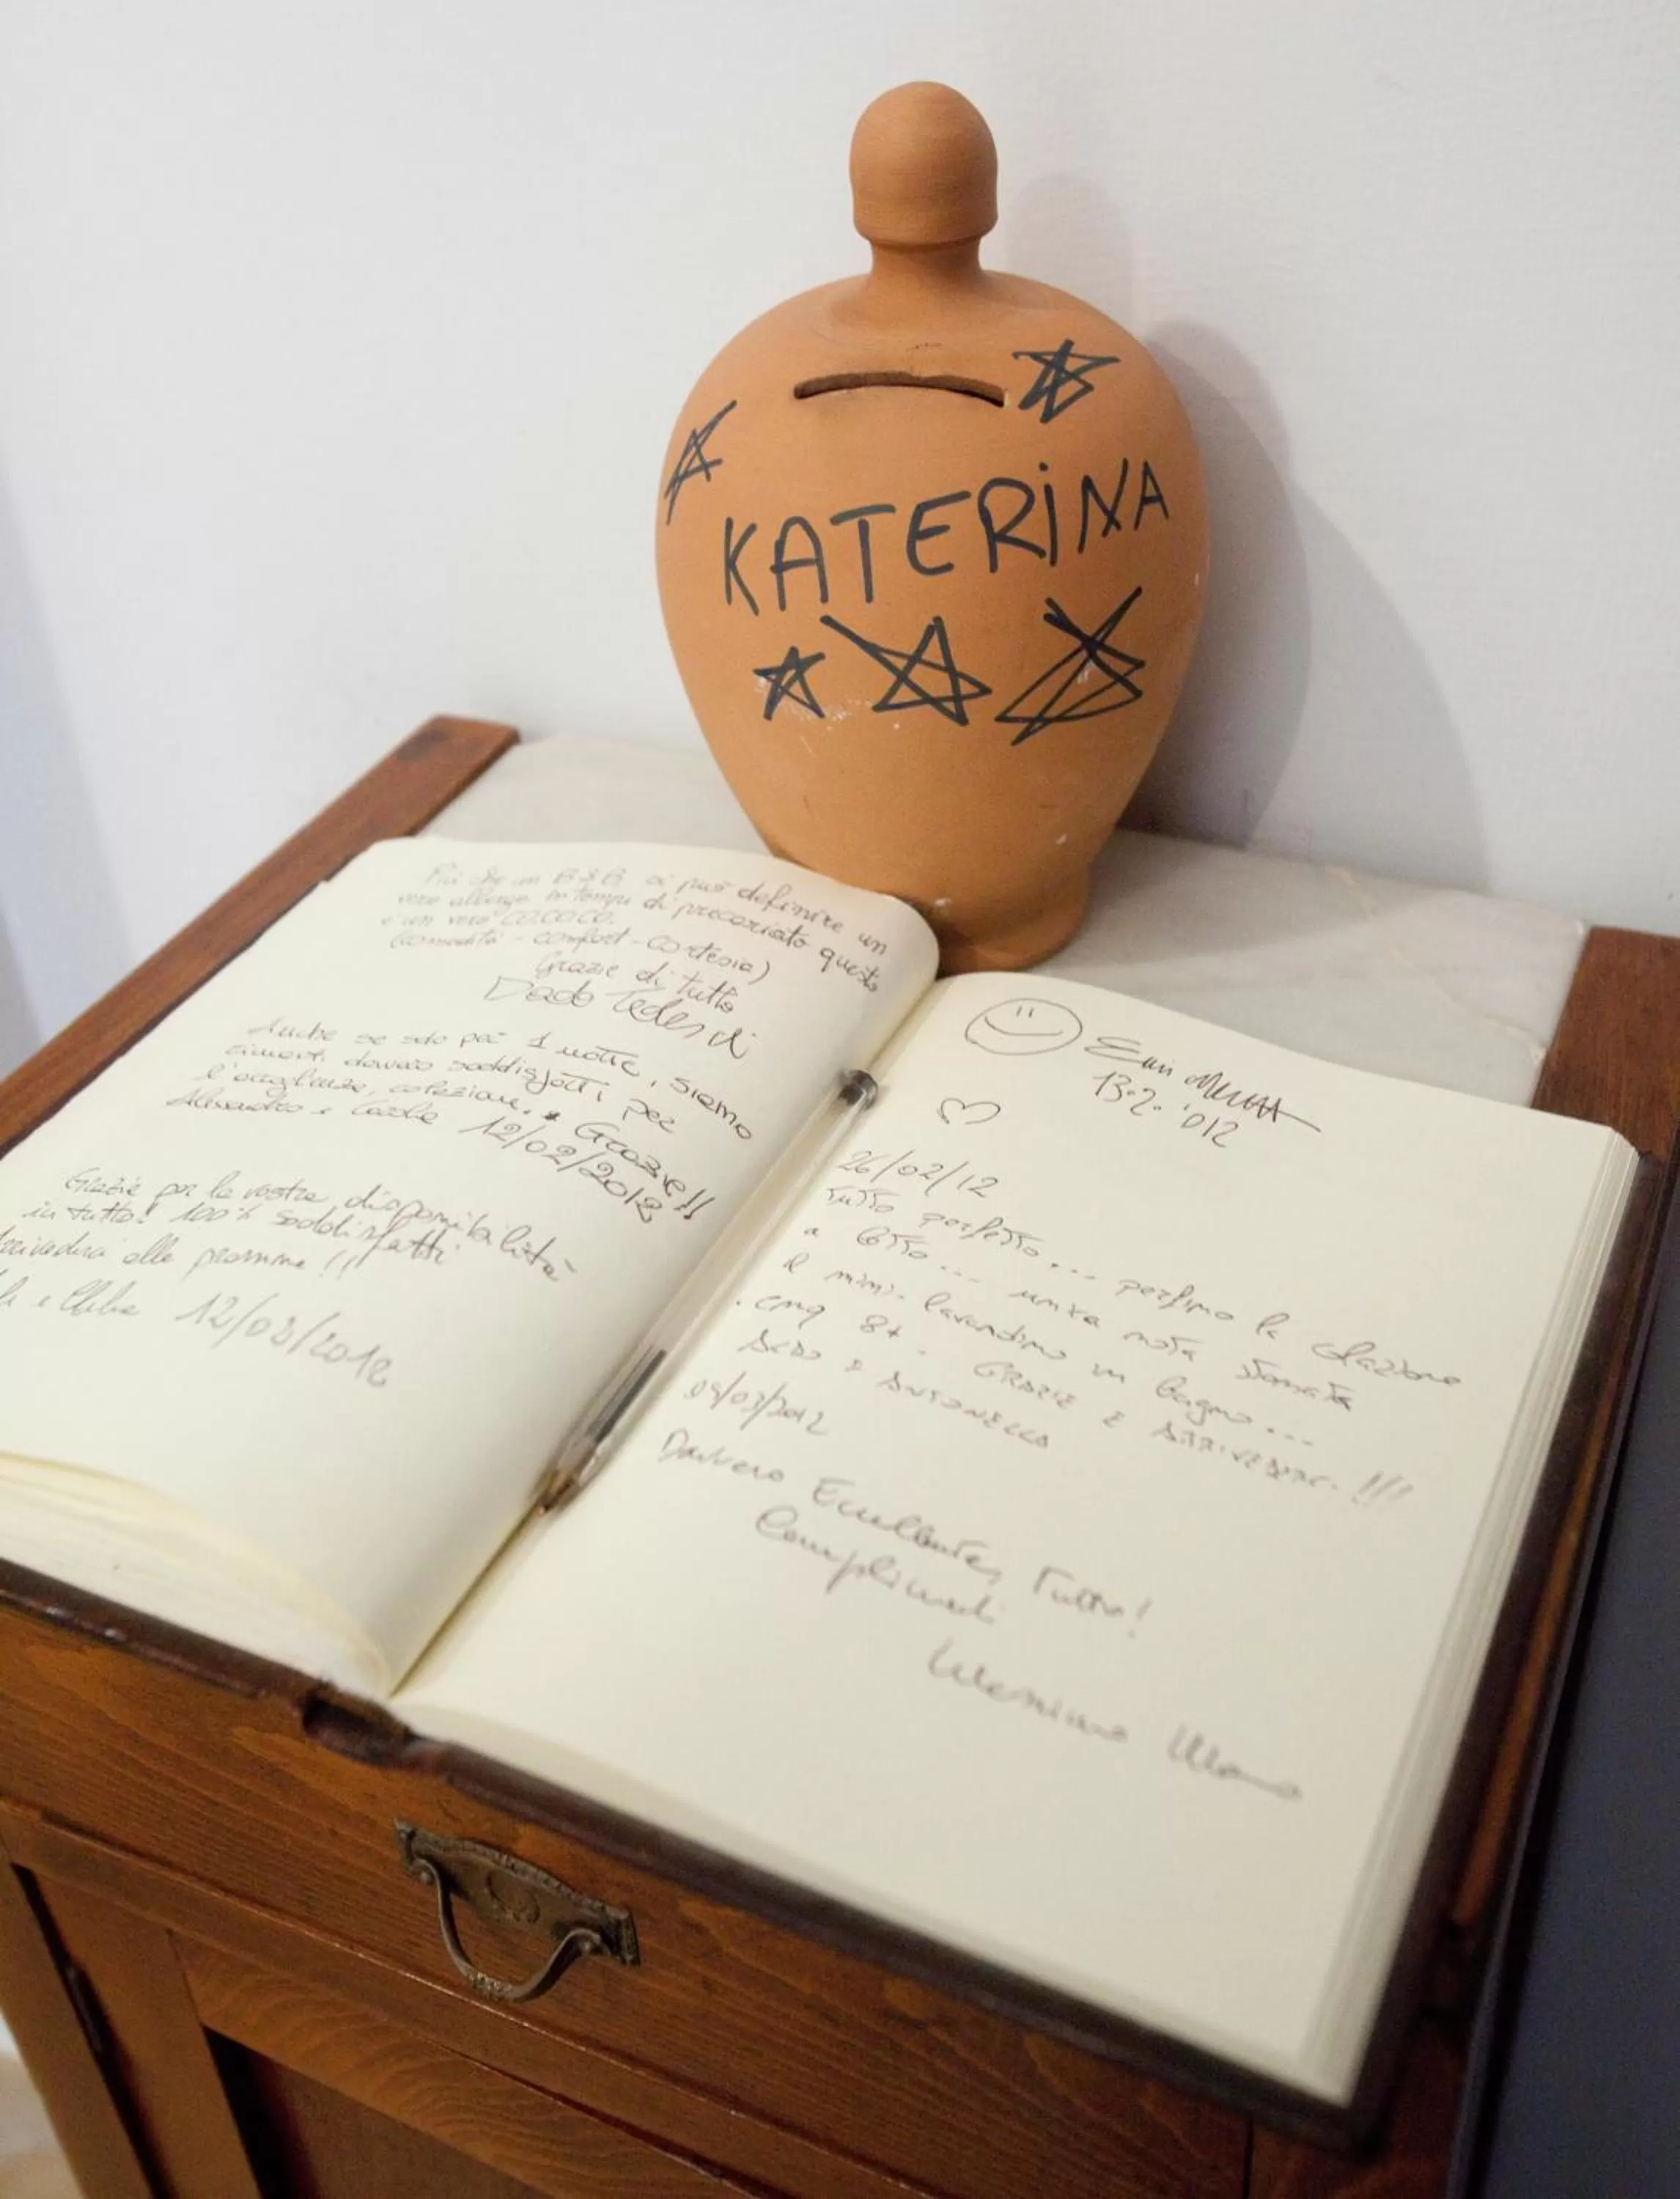 KATERiNA
Più che un B&B si può definire un
vero albergo. In tempi di precariato questo
è un vero CO.CO.CO.
(comodità - comfort - cortesia)
Grazie di tutto
Dado Tedeschi
Anche se solo per 1 notte, siamo
rimasti davvero soddisfatti per
l'accoglienza, colazione. Grazie!!
Alessandro e 12/02/2012
Grazie per la vostra disponibilità
in tutto! 100% soddisfatti
alla prossima!!
e 12/02/2012
13.2.'012
26/02/12
Tutto perfetto... perfino la colazione
a letto... unica nota stonata
il mini-lavandino in bagno...
cmq 8+. GRAZIE E ARRIVEDERCI!!!
ALDO E ANTONELLA
Davvero Eccellente, Tutto!
Complimenti